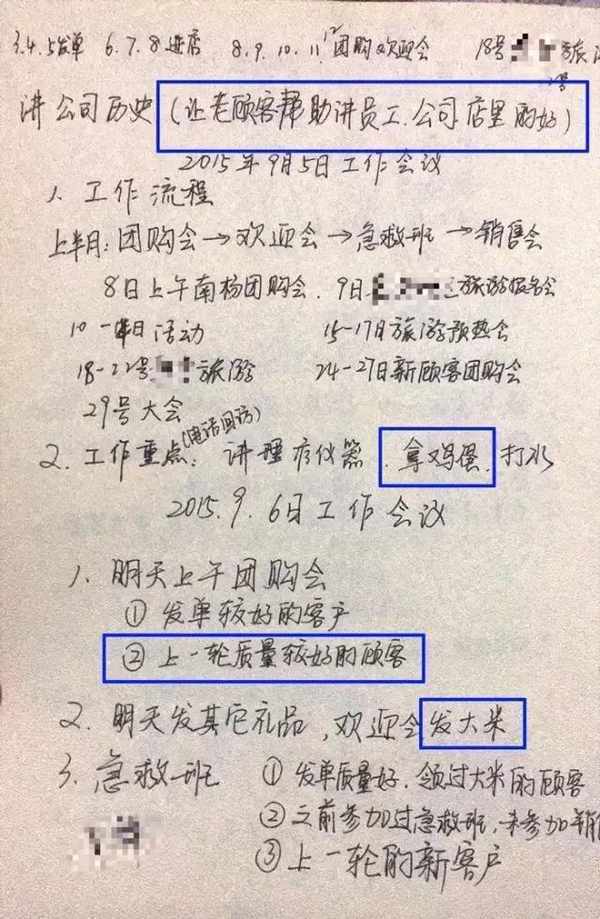 3.4.5发单 6.7.8进店 8.9.10.11.12团购欢迎会 18号 旅游
讲公司历史(让老顾客帮助讲员工.公司店里的好)
2015年9月5日工作会议
1、工作流程
上半月:团购会→欢迎会→急救班→销售会
8日上午南杨团购会、9日 旅游报名会
10-14日活动 15-17日旅游预热会
18-22号 旅游 24-27日新顾客团购会
29号大会
(电话回访)
2、工作重点:讲理疗仪器、拿鸡蛋、打水
2015.9.6日工作会议
1、明天上午团购会
①发单较好的客户
②上一轮质量较好的顾客
2、明天发其它礼品,欢迎会发大米
3、急救班 ①发单质量好、领过大米的顾客
②之前参加过急救班,未参加销
③上一轮的新客户